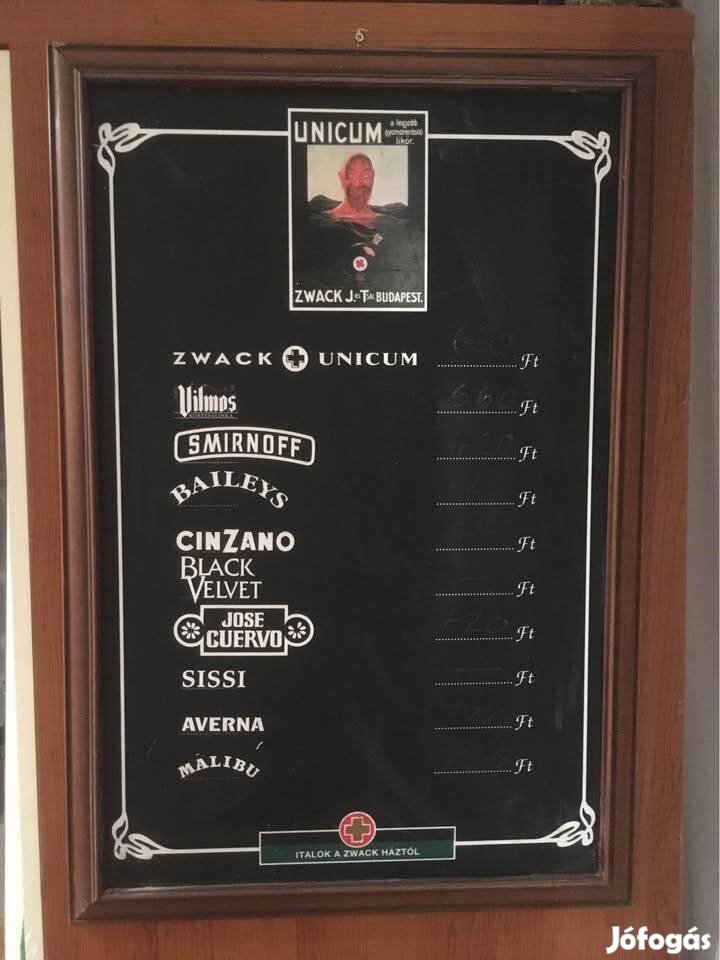 UNICUM
a legjobb
gyomorerősítő
likőr.
ZWACK J. és TSAI. BUDAPEST.
ZWACK UNICUM ........................ Ft
Vilmos ........................ Ft
SMIRNOFF ........................ Ft
BAILEYS ........................ Ft
CINZANO ........................ Ft
BLACK
VELVET ........................ Ft
JOSE
CUERVO ........................ Ft
SISSI ........................ Ft
AVERNA ........................ Ft
MALIBU ........................ Ft
ITALOK A ZWACK HÁZTÓL
Jófogás